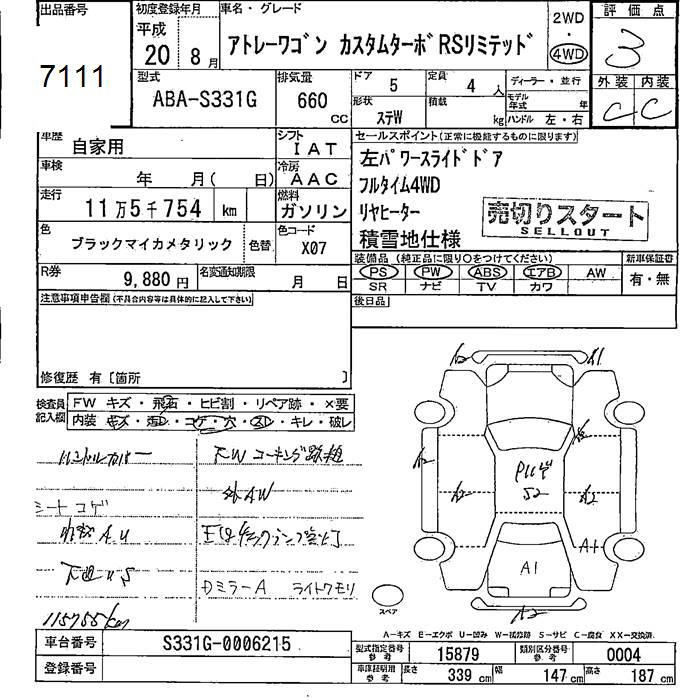 出品番号
7111
初度登録年月
平成
20 8月
車名・グレード
アトレーワゴン カスタムターボRSリミテッド
2WD
・
4WD
評価点
3
型式
ABA-S331G
排気量
660 cc
ドア 5
定員 4 人
形状 ステW
積載 kg
ディーラー・並行
モデル年式 年
ハンドル 左・右
外装 内装
C C
車歴 自家用
シフト IAT
車検 年 月( 日)
冷房 AAC
走行 11万5千754 km
燃料 ガソリン
色 ブラックマイカメタリック 色替
色コード X07
R券 9,880円
名変通知期限 月 日
セールスポイント(正常に機能するものに限ります)
左パワースライドドア
フルタイム4WD
リヤヒーター
積雪地仕様
売切りスタート
SELLOUT
装備品(純正品に限り○をつけてください)
新車保証書
PS PW ABS エアB AW
SR ナビ TV カワ
有・無
後日品
注意事項申告欄(不具合内容等は具体的に記入して下さい)
修復歴 有〔箇所 〕
検査員記入欄
FW キズ・飛石・ヒビ割・リペア跡・×要
内装 キズ・汚レ・コゲ・穴・スレ・キレ・破レ
ハンドルカバー
シートコゲ
下廻りS
115755km
FWコーキング跡
外AW
DミラーA ライトクモリ
A1
A2
A1
A1
スペア
A−キズ E−エクボ U−凹み S−サビ C−腐食 XX−交換済
車台番号 S331G-0006215
登録番号
型式指定番号 参考 15879
類別区分番号 参考 0004
車庫証明用 参考 長さ 339 cm 幅 147 cm 高さ 187 cm